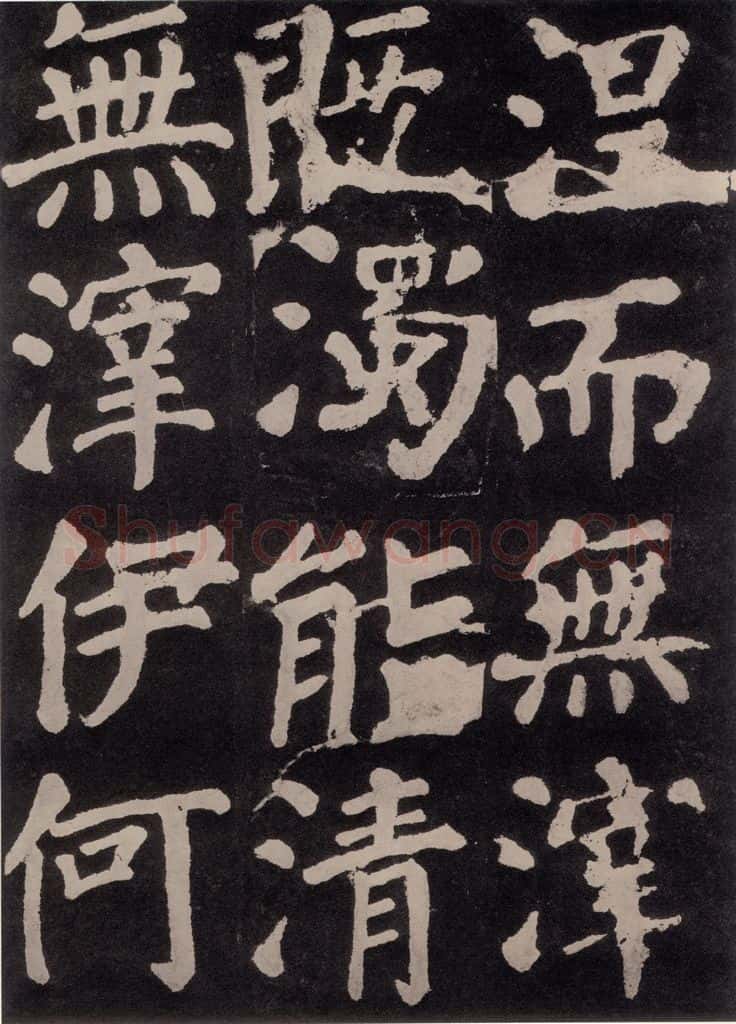 涅而無滓
既濁能清
無滓伊何
Shufawang.CN